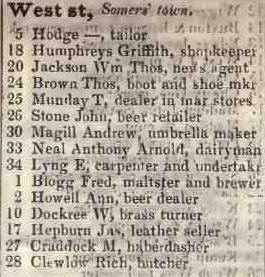 West st, Somers' town.
5 Hodge —, tailor
18 Humphreys Griffith, shopkeeper
20 Jackson Wm Thos, news agent
24 Brown Thos, boot and shoe mkr
25 Munday T, dealer in mar stores
26 Stone John, beer retailer
30 Magill Andrew, umbrella maker
33 Neal Anthony Arnold, dairyman
34 Lyng E, carpenter and undertakr
1 Blogg Fred, maltster and brewer
2 Howell Ann, beer dealer
10 Dockree W, brass turner
17 Hepburn Jas, leather seller
27 Craddock M, haberdasher
28 Clewlow Rich, butcher